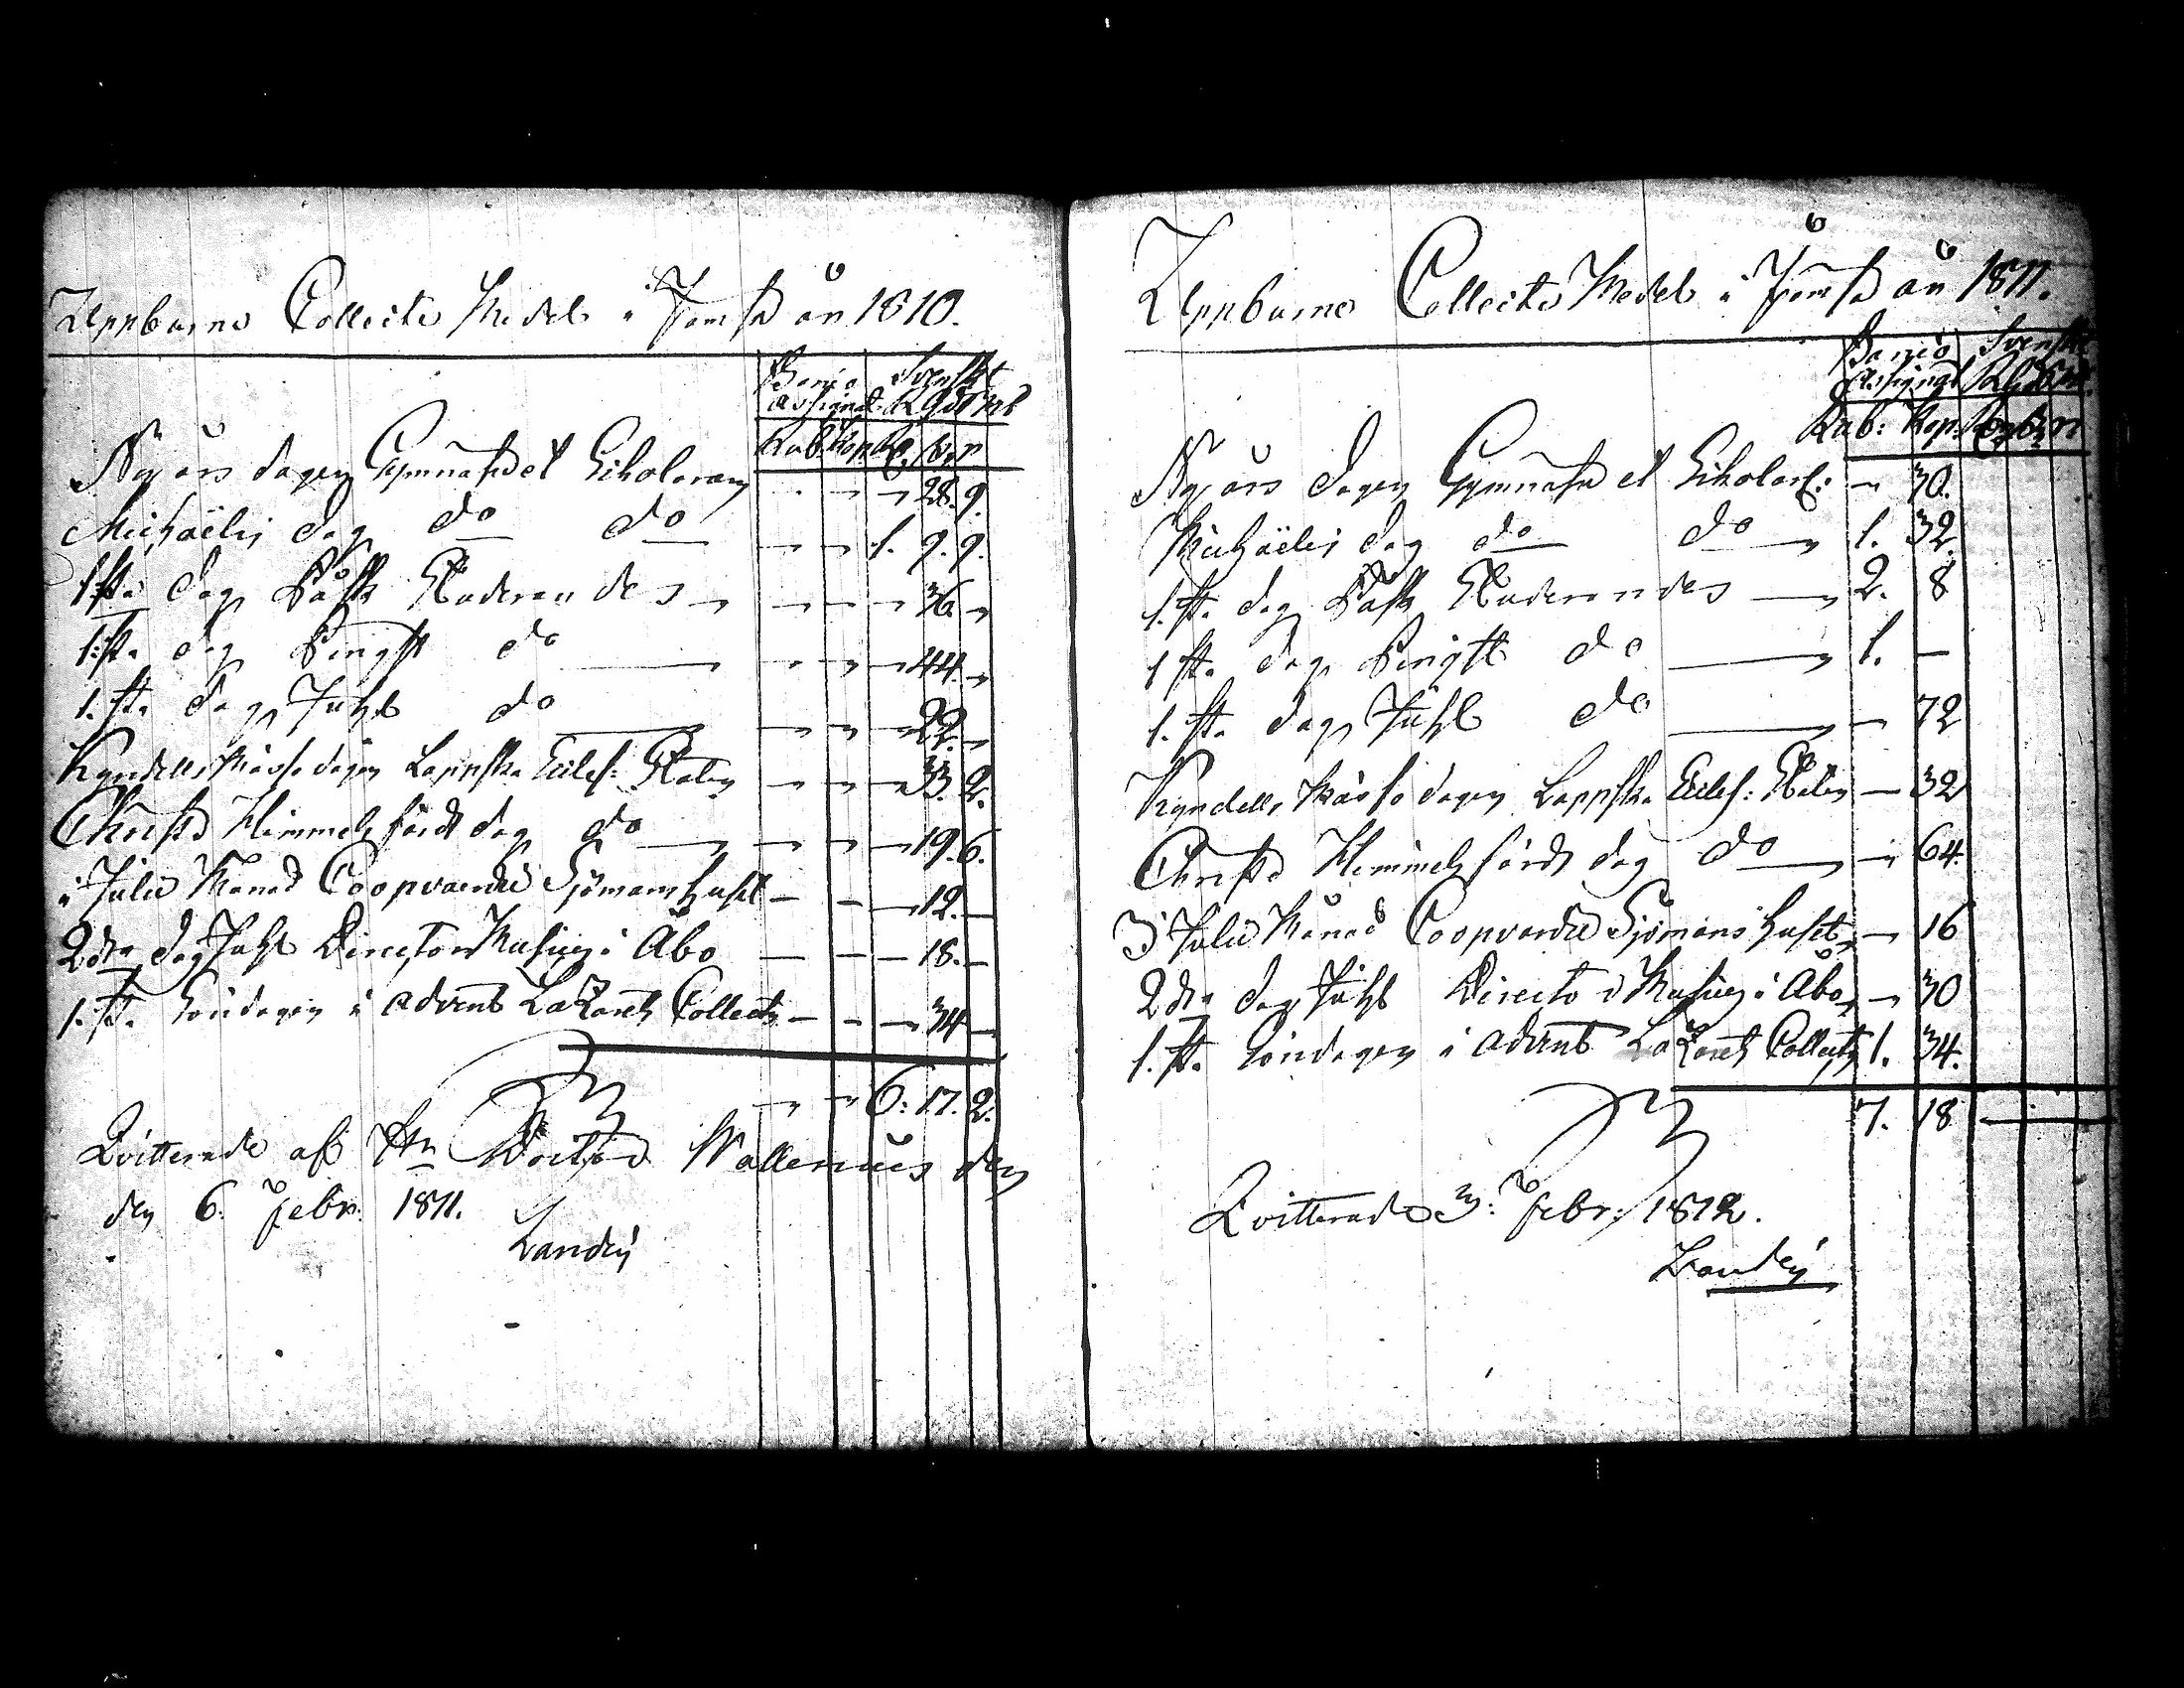 Uppburne Collecte Medel i Jemsä år 1810.
Banco Svenskt
assignat. Rgds mt
Rub. Kop. R. ß. r
Nyårs dagen Gymnasii et Scholarum - - - 28. 9.
Michaëlis dag do do - - 1. 9. 9.
1sta dag Påsk Studerandes - - - 36 -
1sta dag Pingst do - - - 44. -
1.sta dag Juhl do - - - 22. -
Kyndells Mässo dagen Lappska Eccles: Staten - - - 33. 2.
Christi Himmelsfärds dag do - - - 19. 6.
i Julii Månad Coopvaerdie Sjömans huset - - - 12. -
2dra dag Juhl Director Musices i Åbo - - - 18. -
1.sta Söndagen i Advent Lazarets Collecten - - - 34 -
- - 6: 17. 2.
Qvitterade af Hr Doctor Wallenius den
den 6. Febr. 1811.
Landén
Uppburne Collecte Medel i Jemsä år 1811.
Banco Svenskt
assignat Rgds
Rub: Kop: R ß r
Nyårs dagen Gymnasii et Scholar: - 30.
Michaëlis dag do do 1. 32.
1.sta dag Påsk Studerandes 2. 8
1 sta dag Pingst do 1. -
1.sta dag Juhl do - 72
Kyndells Mässo dagen Lappska Eccles: Staten - 32
Christi Himmelsfärds dag do - 64.
I Julii Månad Coopvardie Sjömans huset - 16
2dra dag Juhl Director Musices i Åbo - 30
1.sta Söndagen i Advent Lazarets Collecten 1. 34.
7. 18 -
Qvitterade 3: Febr: 1812.
Landén